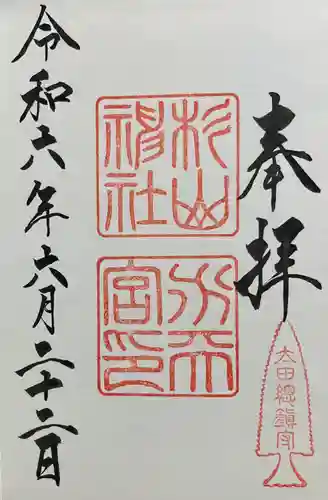 奉拝
太田總鎮守
杉山
神社
水天
宮印
令和六年六月二十二日